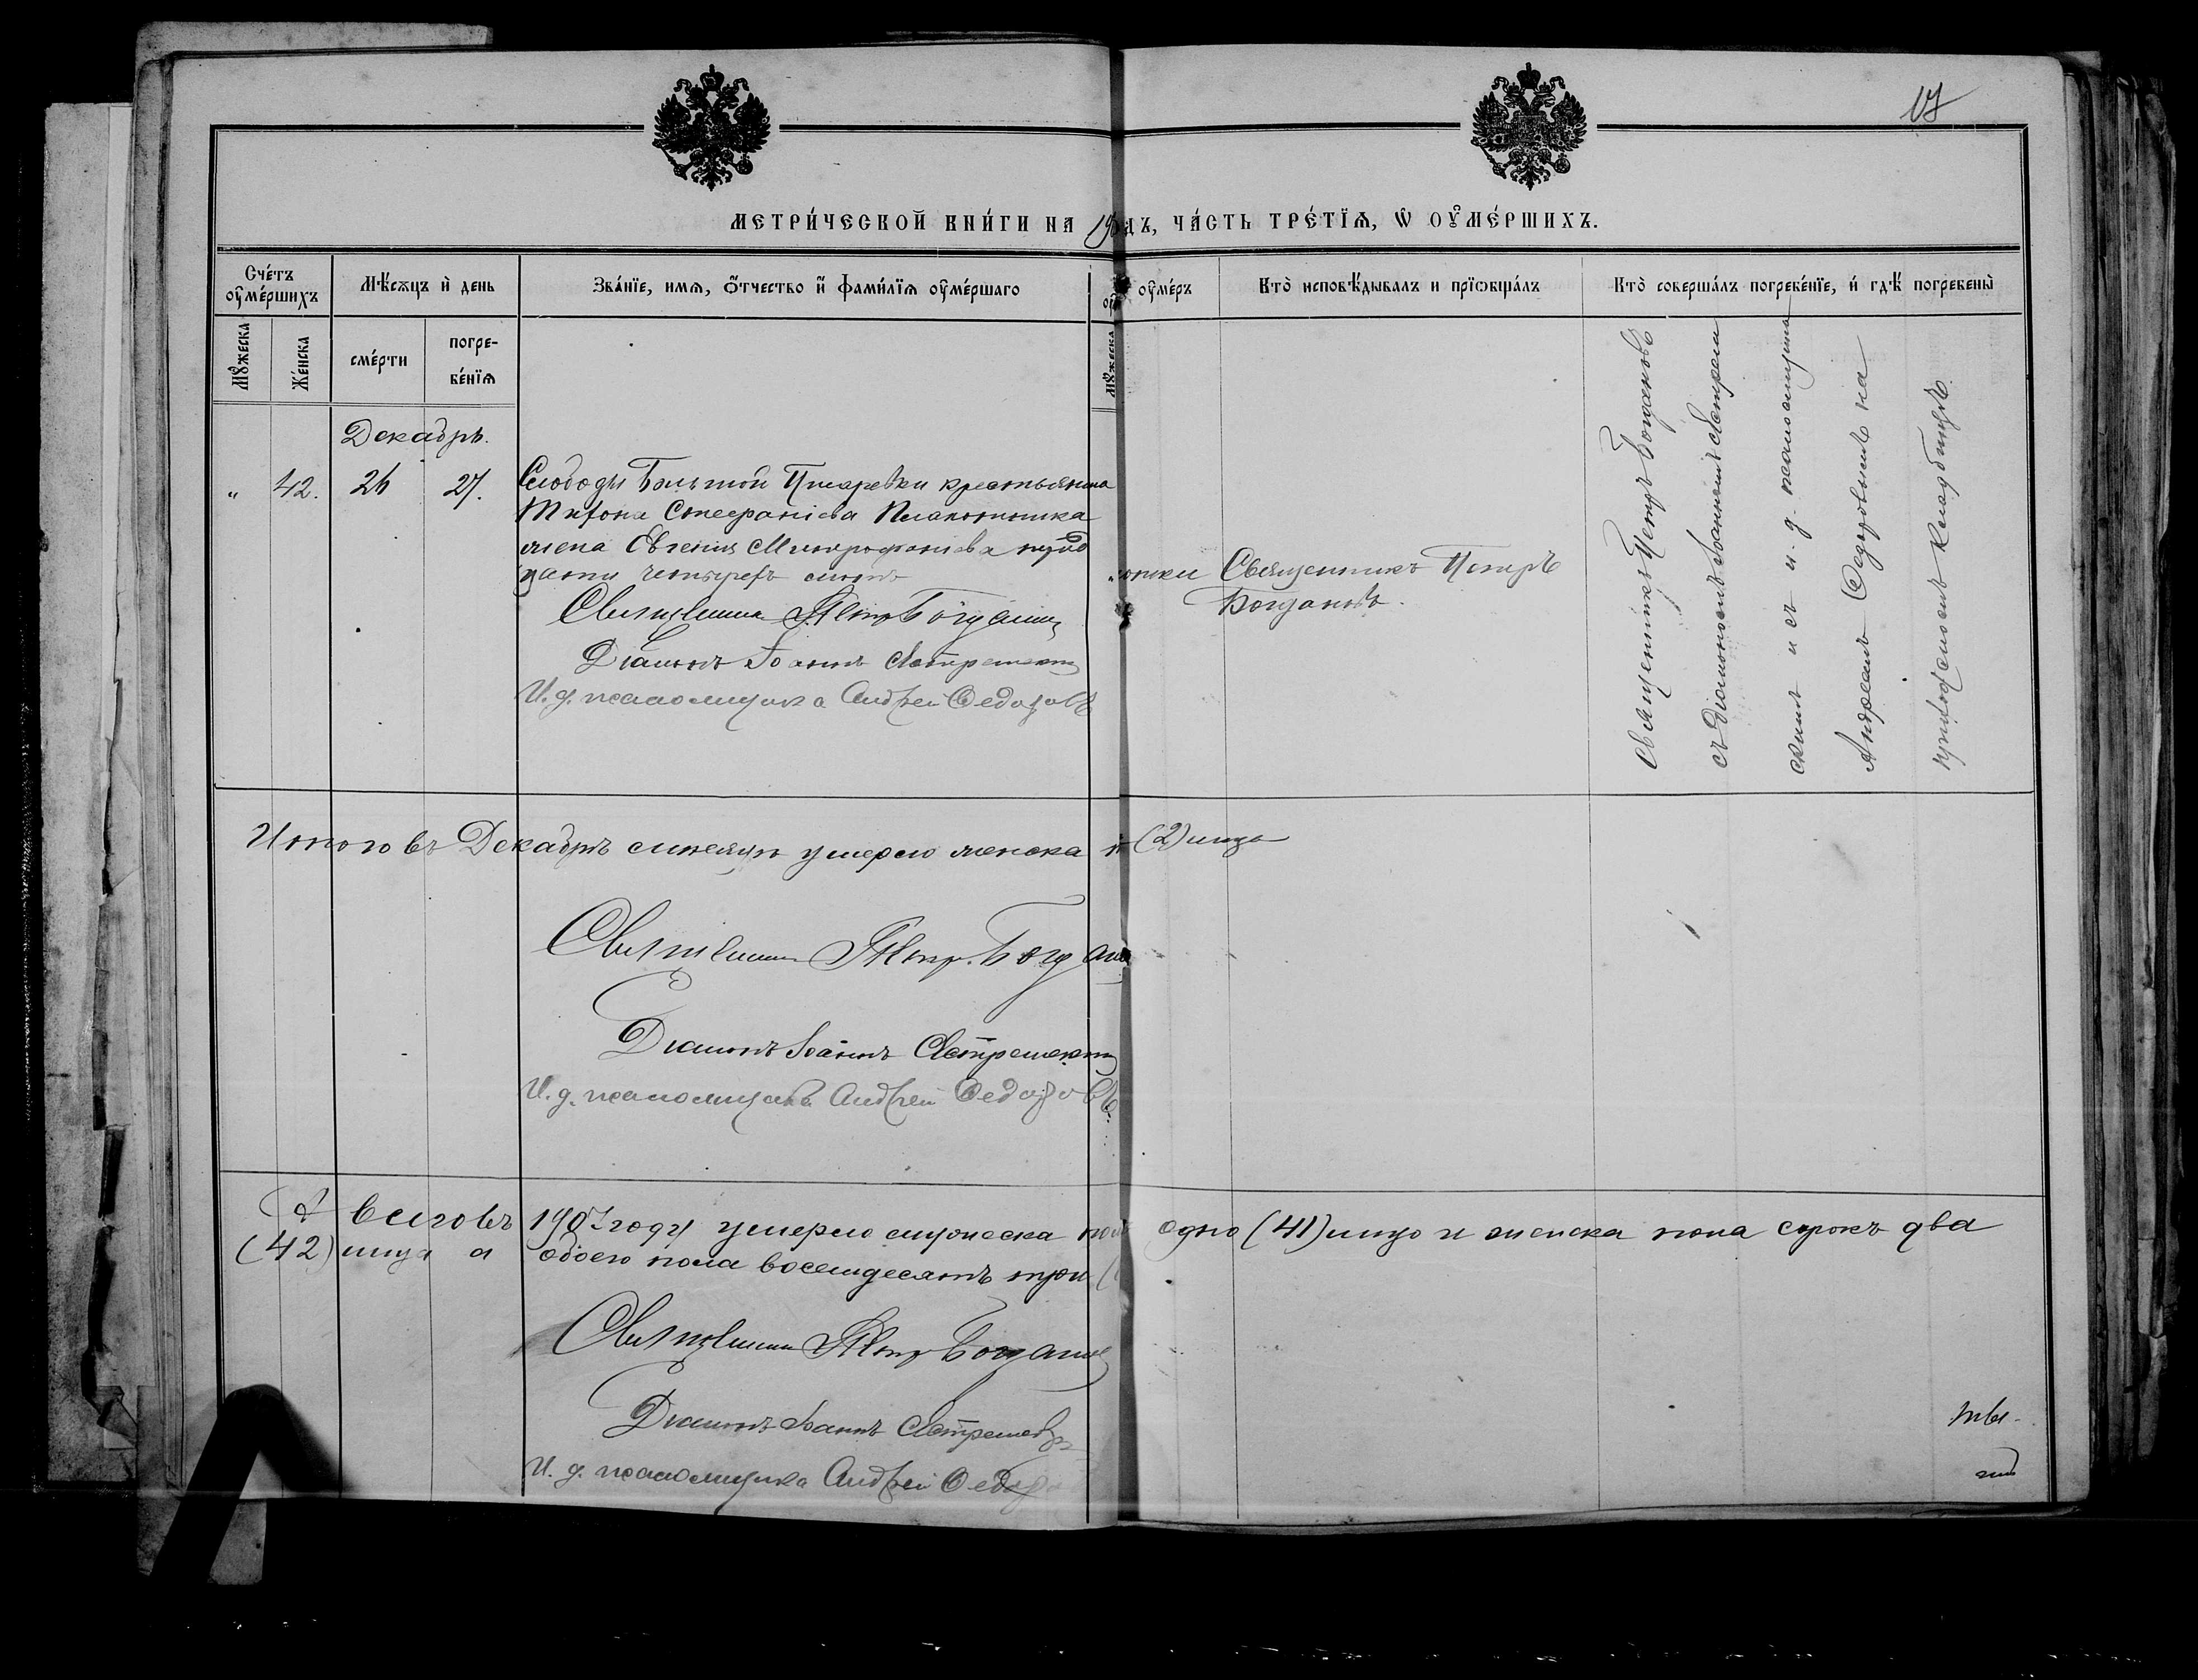 17
МЕТРИ́ЧЕСКОЙ КНИ́ГИ НА 19 ДЪ, ЧА́СТЬ ТРЕ́ТЇѦ, Ѿ ОУМЕ́РШИХЪ.
Сче́тъ оуме́ршихъ
Мѣ́сѧцъ и҆ день
Зва́нїе, имѧ, ѻ҆́тчество и҆ фами́лїѧ оуме́ршаго
оуме́ръ
Кто̀ исповѣ́дывалъ и прїѡбща́лъ
Кто̀ соверша́лъ погребе́нїе, и҆ гдѣ́ погребены̀
Мꙋ́жеска
Же́нска
сме́рти
погре-
бе́нїѧ
Мꙋ́жеска
Декабрь.
„ 42. 26 27. Слободы Большой Писаревки крестьянина
Стефаніева
жена Евгенія Митрофанова
цати четырехъ
Священникъ Петръ Богдановъ
Діаконъ Іоаннъ
И. д. псаломщика Андрей Ѳедоровъ
Священникъ Петръ
Богдановъ.
Священникъ Петръ Богдановъ
съ діакономъ Іоанномъ
скимъ и съ и. д. псаломщика
Андреемъ Ѳедоровымъ на
приходскомъ кладбищѣ.
Итого въ Декабрѣ мѣсяцѣ умерло женска п (2) лица
Священникъ Петръ Богданов
Діаконъ Іоаннъ
И. д. псаломщика Андрей Ѳедоровъ.
А всего въ 1907 году умерло мужеска пола одно (41) лицо и женска пола сорокъ два
(42) лица а обоего пола восемьдесятъ три (
Священникъ Петръ Богданов
Діаконъ Іоаннъ
И. д. псаломщика Андрей Ѳедоро